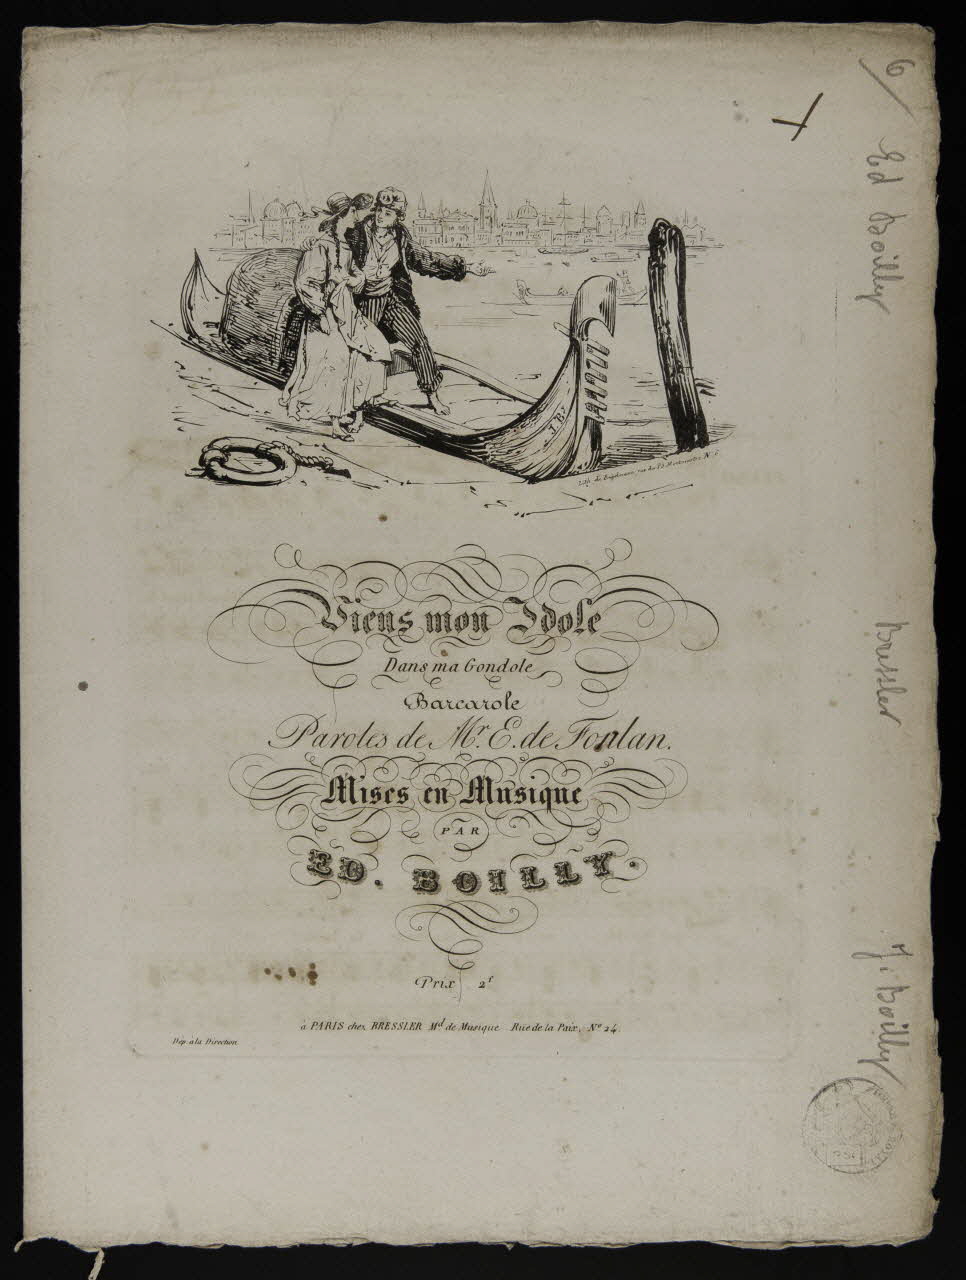 6
Ed Boilly
Bressler
J. Boilly
J. B.
Lith. de Engelmann, rue du F.g Montmartre N. 6
Viens mon Idole
Dans ma Gondole
Barcarole
Paroles de Mr. E. de Foulan.
Mises en Musique
PAR
ED. BOILLY.
Prix 2f
à PARIS chez BRESSLER Md de Musique Rue de la Paix, No 24.
Dép. à la Direction